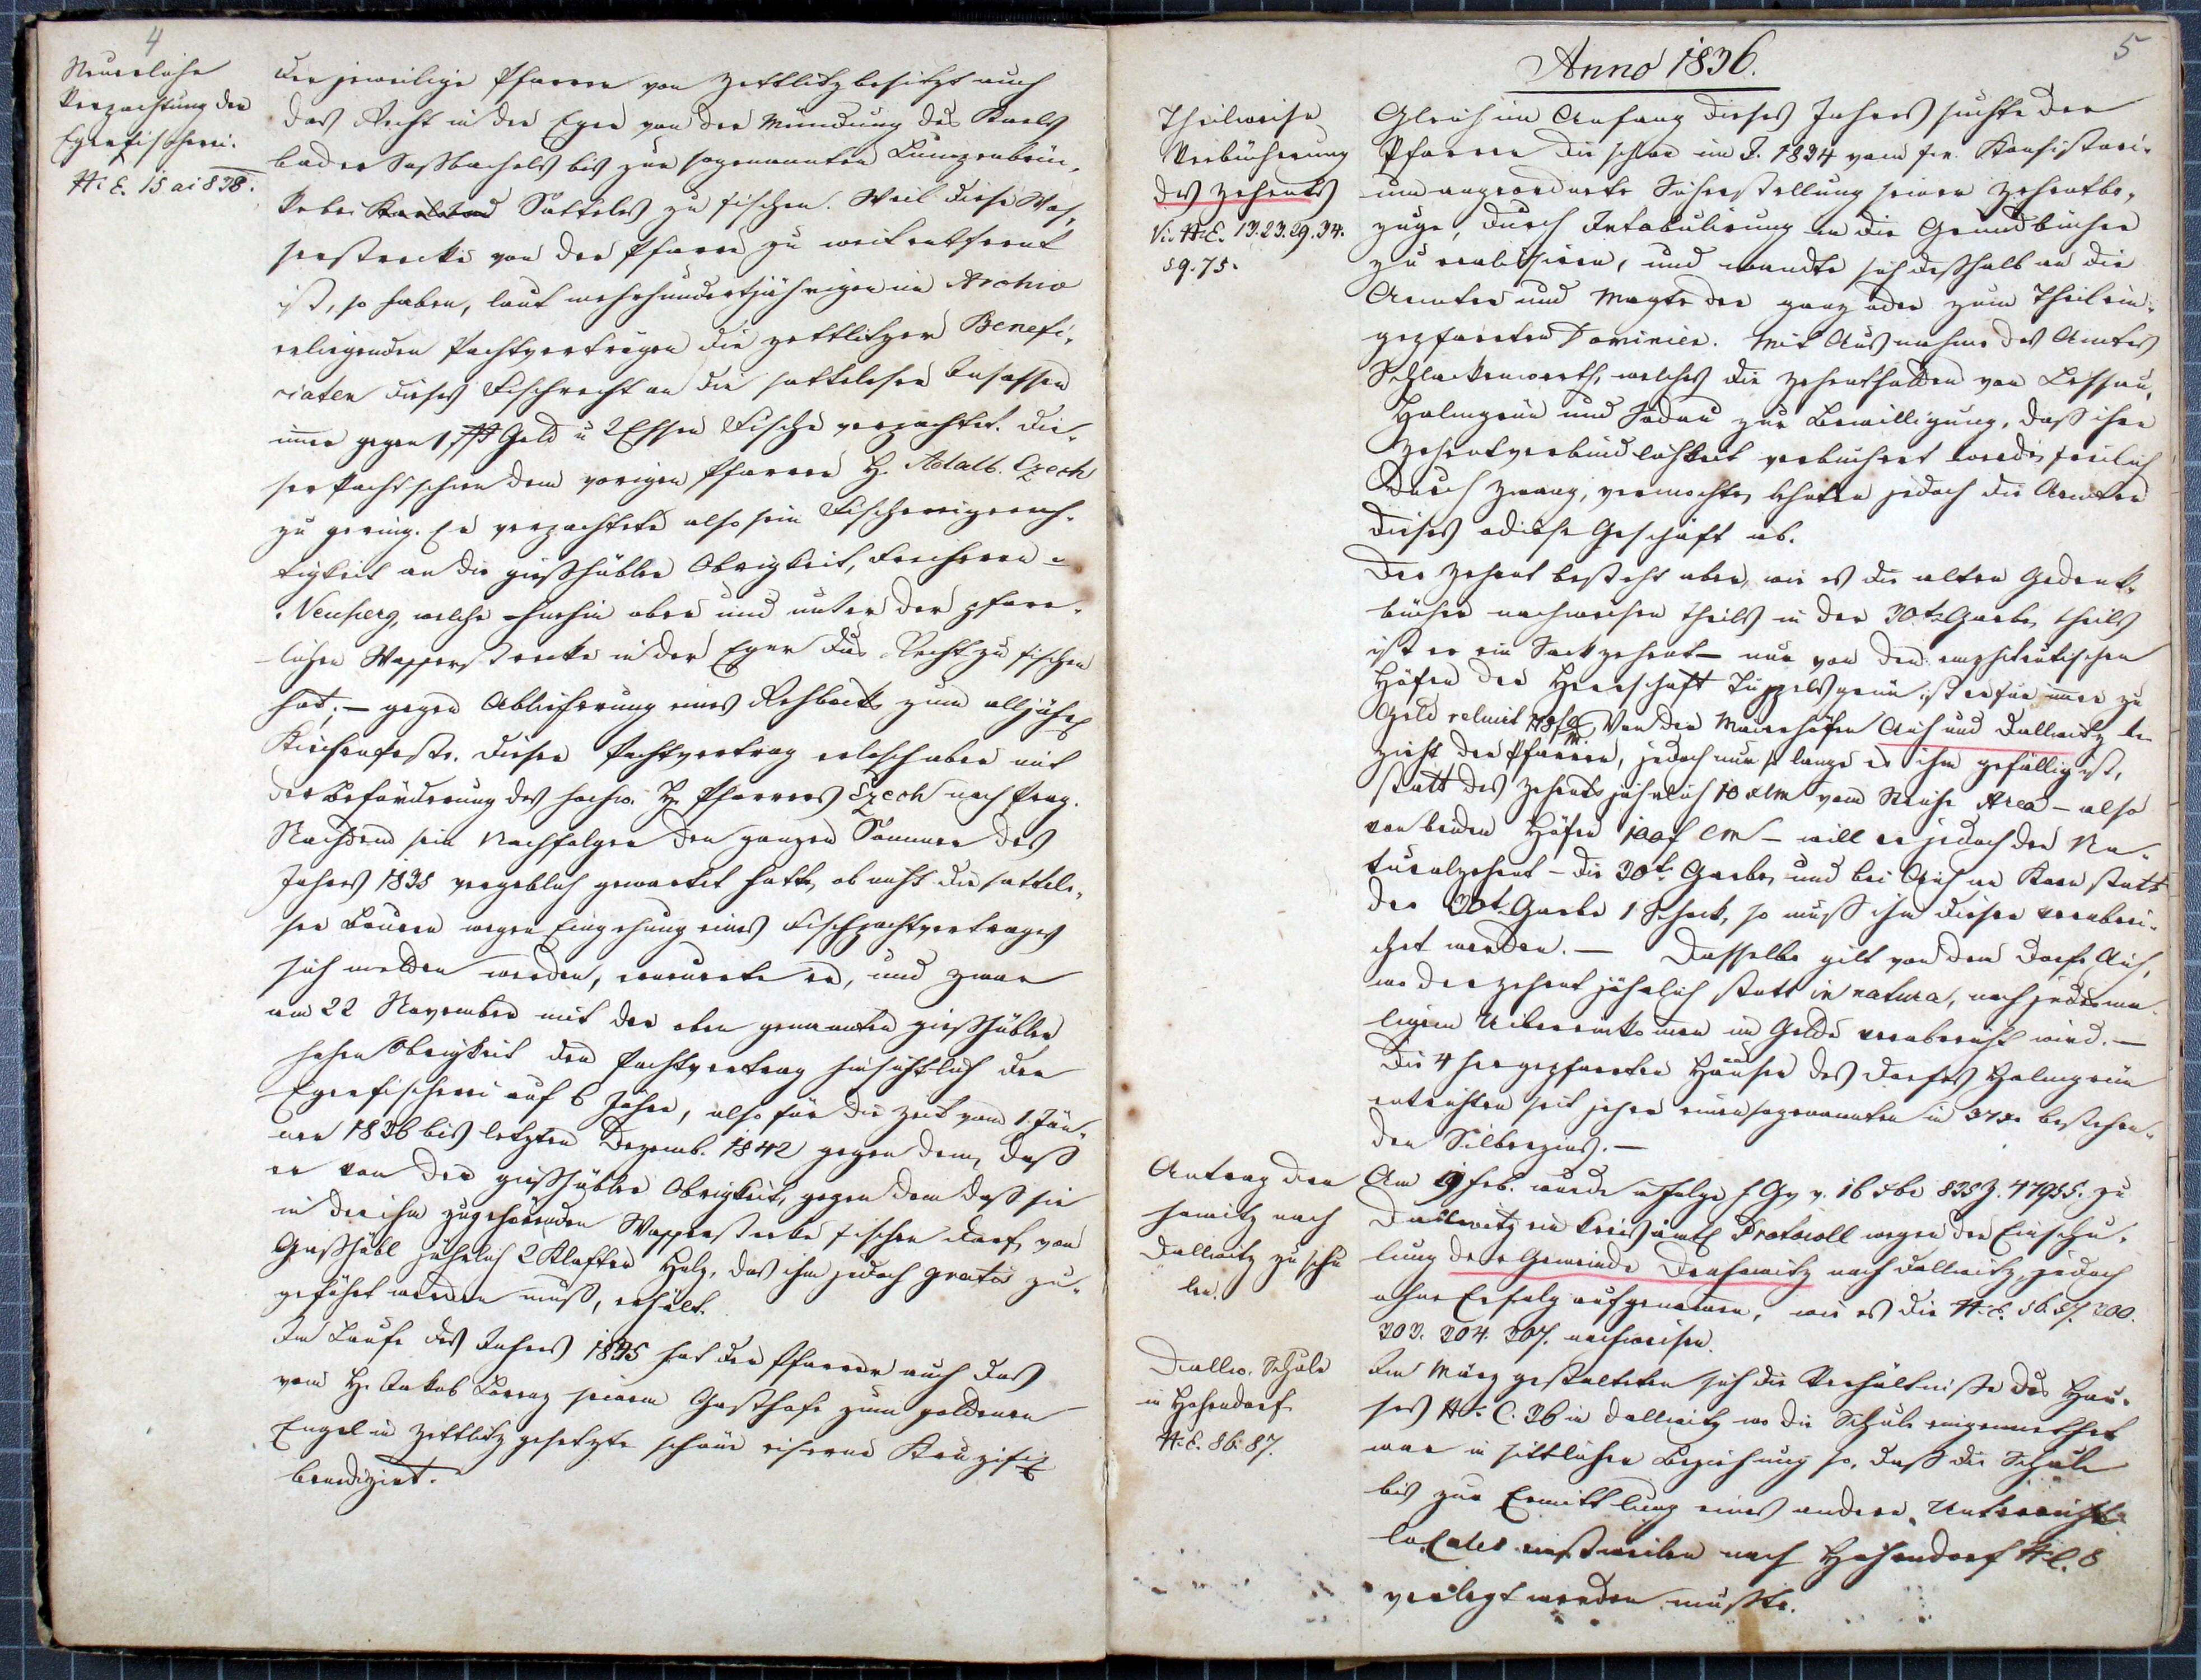 4
Neuerliche
Verpachtung der
Egerfischerei.
N: E. 15 ai 838.
Der jeweilige Pfarrer von Zettlitz besitzt auch
das Recht in der Eger von der Mündung des Karls
bader baches bis zur sogenannten
bei Karlsbad Sattels zu fischen. Weil diese Was¬
serstrecke von der Pfarre zu weit entfernt
ist, so haben, laut mehrhundertjährigen im Archiv
erliegenden Pachtverträgen die zettlitzer Benefi¬
ciaten dieses Fischrecht an die sattelser Insassen
immer gegen 1 Geld u 2 Essen Fische verpachtet. Die¬
ser Pacht schien dem vorigen Pfarrer H. Adalb. Czech
zu gering. Er verpachtete also sein Fischereigerech¬
tigkeit an die gießhübler Obrigkeit, Freiherrn v
Neuberg, welche ohnehin ober und unter der pfarr¬
lichen Wasserstrecke in der Eger das Recht zu fischen
hat; – gegen Ablieferung eines Rehbocks zum alljährl
Kirchenfeste. Dieser Pachtvertrag erlosch aber mit
der Beförderung des hochw. H. Pfarrers Czech nach Prag.
Nachdem sein Nachfolger den ganzen Sommer des
Jahres 1835 vergeblich gewartet hatte, ob nicht die sattel¬
ser Bauern wegen Eingehung eines Fischpachtvertrages
sich melden werden, erneuerte er, und zwar
am 22 November mit der oben genannten gießhübler
hohen Obrigkeit den Pachtvertrag hinsichtlich der
Egerfischerei auf 6 Jahre, also für die Zeit vom 1. Jän¬
ner 1836 bis letzten Dezemb. 1842 gegen dem, daß
er von der gießhübler Obrigkeit, gegen dem daß sie
in der ihm zugehörenden Wasserstrecke fischen darf, von
Gießhübl jährlich 2 Klafter Holz, das ihm jedoch gratis zu¬
geführt werden muß, erhält.
Im Laufe des Jahres 1835 hat der Pfarrer auch das
vom H. Jakob Lorenz seinem Gasthofe zum goldenen
Engel in Zettlitz gesetzte schöne eiserne Kruzifix
benedizirt.
5
Anno 1836.
Theilweise
Verbücherung
des Zehents
Vis N: E. 13. 23. 29. 34.
59. 75.
Gleich im Anfang dieses Jahres suchte der
Pfarrer die schon im J. 1834 vom Konsistori¬
um angeordnete Sicherstellung seiner Zehentbe¬
züge, durch Intabulirung in die Grundbücher
zu realisiren, und wandte sich deßhalb an die
Aemter und Magte der ganz oder zum Theil ein¬
gepfarrten Dominien. Mit Ausnahme des Amtes
Schlackenwerth, welches die Zehentholden von Lessau,
Halmgrün und Sodau zur Bewilligung, daß ihre
Zehentverbindlichkeit verbüchert werde, freilich
durch Zwang, vermochte, lehnten jedoch die Aemter
dieses odiose Geschäft ab.
Der Zehent besteht aber, wie es die alten Gedenk¬
bücher nachweisen theils in der 30te Garbe, theils
ist er ein Sackzehent – nur von den emphiteutischen
Höfen der Herrschaft Tüppelsgrün ist er für immer zu
Geld reluirt Von den Maierhöfen Aich und Dallwitz be
zieht der Pfarrer, jedoch nur so lange es ihm gefällig ist,
statt des Zehents jährlich 10 x CM vom Striche Area – also
von beiden Höfen 100f CM – will er jedoch den Na¬
turalzehent – die 30te Garbe, und bei Aich an Korn statt
der 30te Garbe 1 Schock, so muß ihm dieser verabrei¬
chet werden. – Dasselbe gilt von dem Dorfe Aich,
wo der Zehent jährlich statt in natura, nach jedesma¬
ligem Uibereinkommen im Gelde verabreicht wird. –
Die 4 hergepfarrten Häuser des Dorfes Halmgrün
entrichten seit jeher einen sogenannten in 37 x bestehen¬
den Silberzins. –
Antrag Dra
howitz nach
Dallwitz zu schu
len.
Am 9 Feb. wurde in Folge h Gv v. 16 835 Z. 47955. zu
Dallwitz ein kreisämtl Protocoll wegen der Einschu¬
lung der Gemeinde Drahowitz nach Dallwitz, jedoch
ohne Erfolg aufgenommen, wie es die N: E. 56. 57. 200.
303. 304. 307. nachweisen.
Dallw. Schule
in Hohendorf
N: E. 86. 87.
Im März gestalteten sich die Verhältniße des Hau¬
ses N: C. 36 in Dallwitz wo die Schule eingemiethet
war in sittlicher Beziehung so, daß die Schule
bis zur Ermittlung eines andern Unterrichts
locales einstweilen nach Hohendorf N: C. 8
verlegt werden mußte.